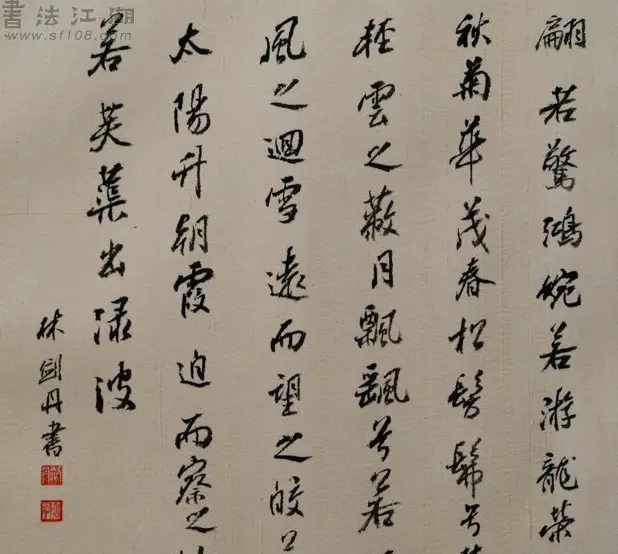 書法江湖
www.sf108.com
翩若驚鴻婉若游龍榮
秋菊華茂春松髣髴兮
輕雲之蔽月飄颻兮若
風之迴雪遠而望之皎
太陽升朝霞迫而察之
若芙蕖出渌波
林劍丹書